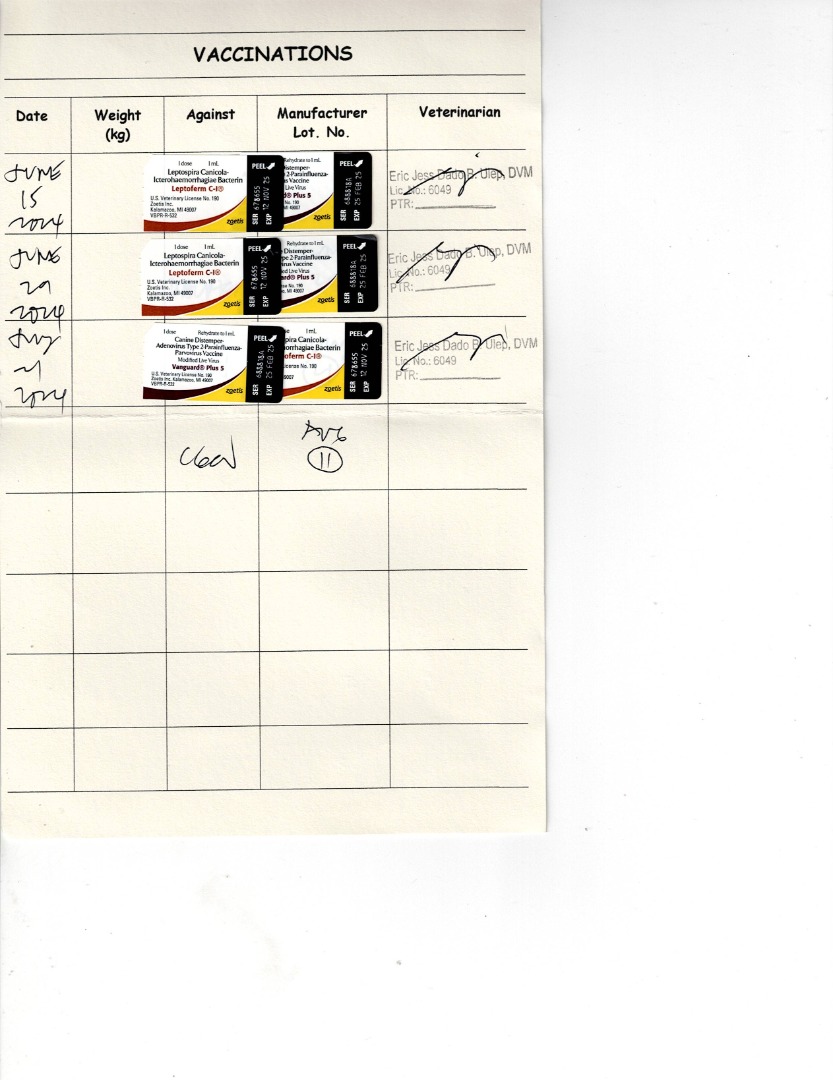 VACCINATIONS
Date Weight (kg) Against Manufacturer Lot. No. Veterinarian
JUNE
15
2024
1 dose 1 mL
Leptospira Canicola-
Icterohaemorrhagiae Bacterin
Leptoferm C-I®
U.S. Veterinary License No. 190
Zoetis Inc.
Kalamazoo, MI 49007
VBPR-R-532
zoetis
PEEL
SER 678655
EXP 12 NOV 25
Rehydrate to 1 mL
Distemper-
2-Parainfluenza-
s Vaccine
Live Virus
d® Plus 5
No. 190
MI 49007
PEEL
SER 688818A
EXP 25 FEB 25
Eric Jess Dado B. Ulep, DVM
Lic. No.: 6049
PTR:
JUNE
2024
1 dose 1 mL
Leptospira Canicola-
Icterohaemorrhagiae Bacterin
Leptoferm C-I®
U.S. Veterinary License No. 190
Zoetis Inc.
Kalamazoo, MI 49007
VBPR-R-532
zoetis
PEEL
SER 678655
EXP 12 NOV 25
Rehydrate to 1 mL
Distemper-
pe 2-Parainfluenza-
irus Vaccine
ed Live Virus
ard® Plus 5
se No. 190
o, MI 49007
PEEL
SER 688818A
EXP 25 FEB 25
Eric Jess Dado B. Ulep, DVM
Lic. No.: 6049
PTR:
2024
1 dose Rehydrate to 1 mL
Canine Distemper-
Adenovirus Type 2-Parainfluenza-
Parvovirus Vaccine
Modified Live Virus
Vanguard® Plus 5
U.S. Veterinary License No. 190
Zoetis Inc. Kalamazoo, MI 49007
VBPR-R-532
zoetis
PEEL
SER 688818A
EXP 25 FEB 25
se 1 mL
pira Canicola-
orrhagiae Bacterin
oferm C-I®
License No. 190
9007
zoetis
PEEL
SER 678655
EXP 12 NOV 25
Eric Jess Dado B. Ulep, DVM
Lic. No.: 6049
PTR:
11